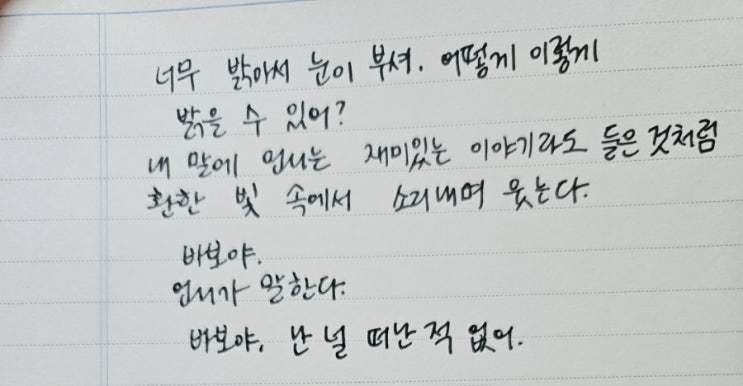 너무 밝아서 눈이 부셔. 어떻게 이렇게
밝을 수 있어?
내 말에 언니는 재미있는 이야기라도 들은 것처럼
환한 빛 속에서 소리내며 웃는다.
바보야.
언니가 말한다.
바보야, 난 널 떠난 적 없어.